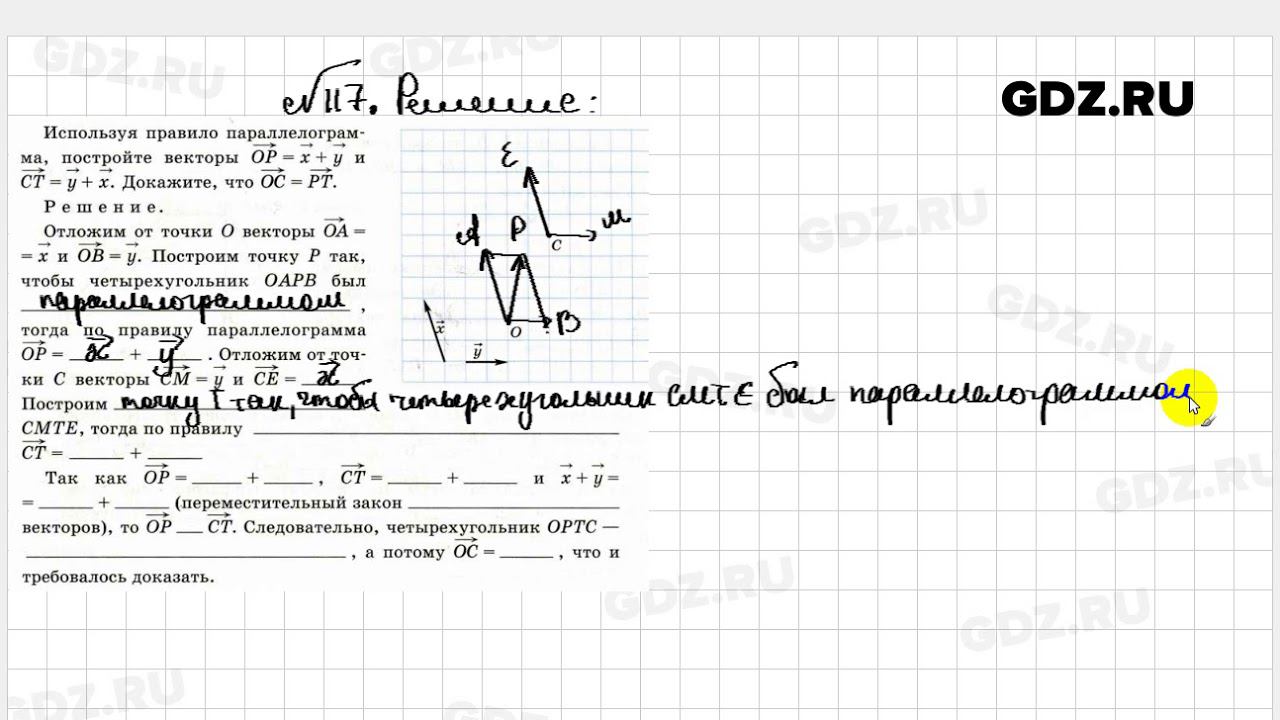 GDZ.RU
GDZ.RU
№117. Решение:
GDZ.RU
Используя правило параллелограм-
ма, постройте векторы OP = x + y и
CT = y + x. Докажите, что OC = PT.
Решение.
Отложим от точки O векторы OA =
= x и OB = y. Построим точку P так,
чтобы четырехугольник OAPB был
параллелограммом ,
тогда по правилу параллелограмма
OP = x + y . Отложим от точ-
ки C векторы CM = y и CE = x
Построим точку T так, чтобы четырехугольник CMTE был параллелограммом
CMTE, тогда по правилу
CT = ____ + ____
Так как OP = ____ + ____ , CT = ____ + ____ и x + y =
= ____ + ____ (переместительный закон ____
векторов), то OP __ CT. Следовательно, четырехугольник OPTC —
____ , а потому OC = ____ , что и
требовалось доказать.
E
M
C
A
P
O
B
x
y
GDZ.RU
GDZ.RU
GDZ.RU
GDZ.RU
GDZ.RU
GDZ.RU
GDZ.RU